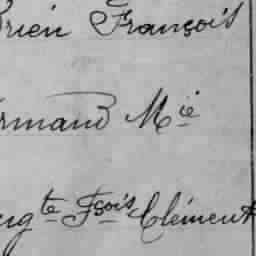 rien François
rmand Mie
ugte Fçois Clément